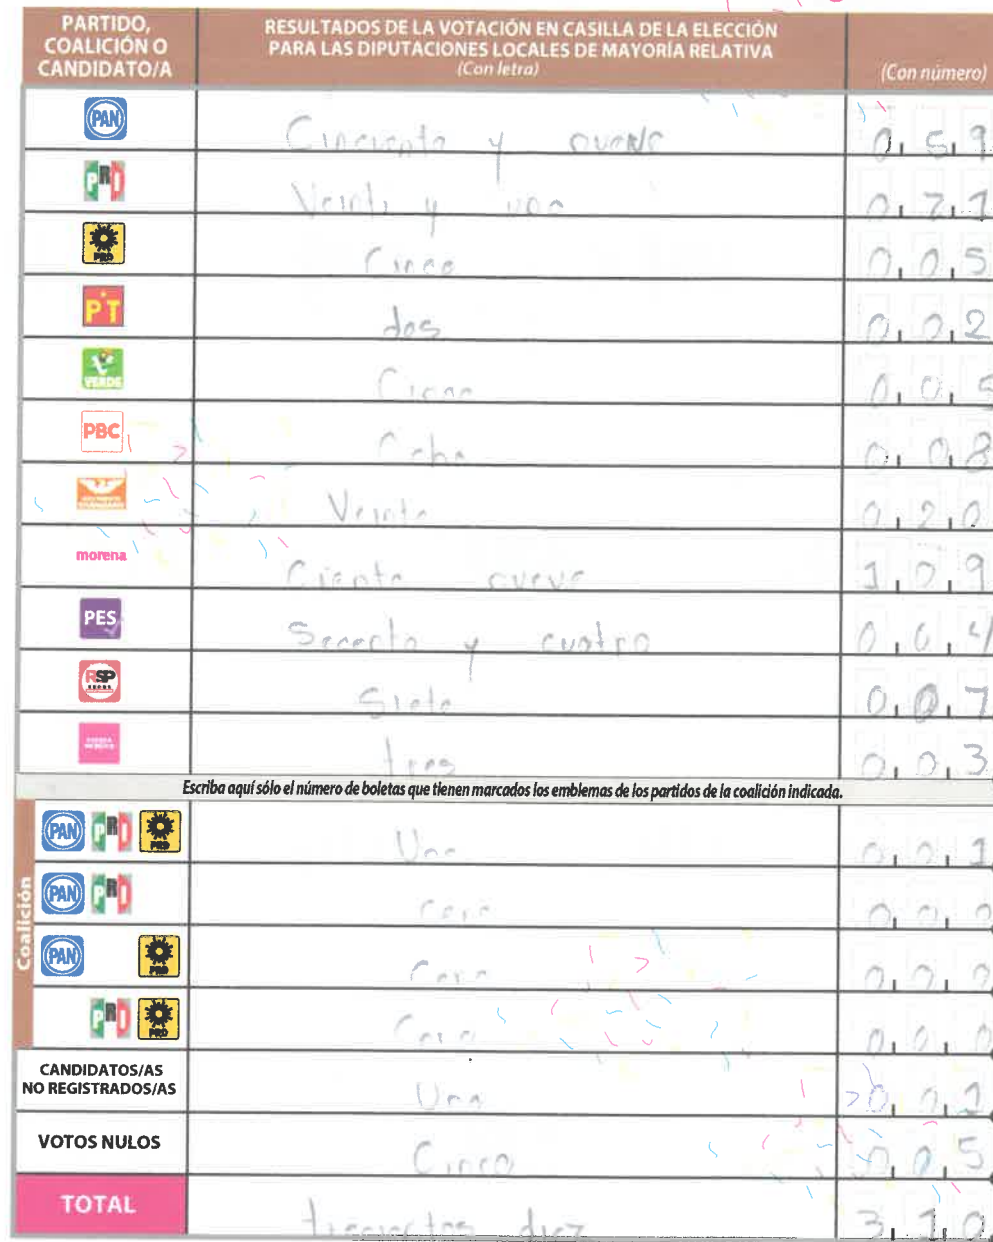 PARTIDO, COALICIÓN O CANDIDATO/A
RESULTADOS DE LA VOTACIÓN EN CASILLA DE LA ELECCIÓN PARA LAS DIPUTACIONES LOCALES DE MAYORÍA RELATIVA
(Con letra)
(Con número)
PAN Cincuenta y nueve 059
PRI Veinti y uno 021
PRD Cinco 005
PT dos 002
VERDE Cinco 005
PBC Ocho 008
Veinte 020
morena Ciento nueve 109
PES Secenta y cuatro 064
RSP Siete 007
tres 003
Escriba aquí sólo el número de boletas que tienen marcados los emblemas de los partidos de la coalición indicada.
Coalición
PAN PRI PRD Uno 001
PAN PRI Cero 000
PAN PRD Cero 000
PRI PRD Cero 000
CANDIDATOS/AS NO REGISTRADOS/AS Uno 001
VOTOS NULOS Cinco 005
TOTAL trecientos diez 310